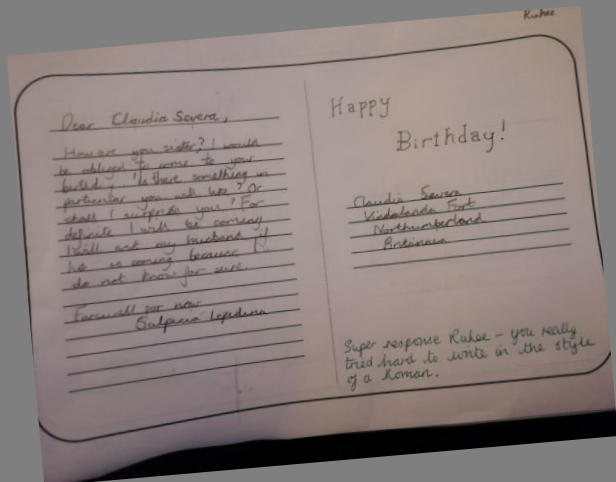 Ruhee
Dear Claudia Severa,
How are you sister? I would
be obliged to come to your
birthday. Is there something in
particular you will like? Or
shall I surprise you? For
definite I will be coming
I will ask my husband if
he is coming because I
do not know for sure.
Farewell for now
Sulpicia Lepidina
Happy
Birthday!
Claudia Severa
Vindolanda Fort
Northumberland
Britannia
Super response Ruhee – you really
tried hard to write in the style
of a Roman.